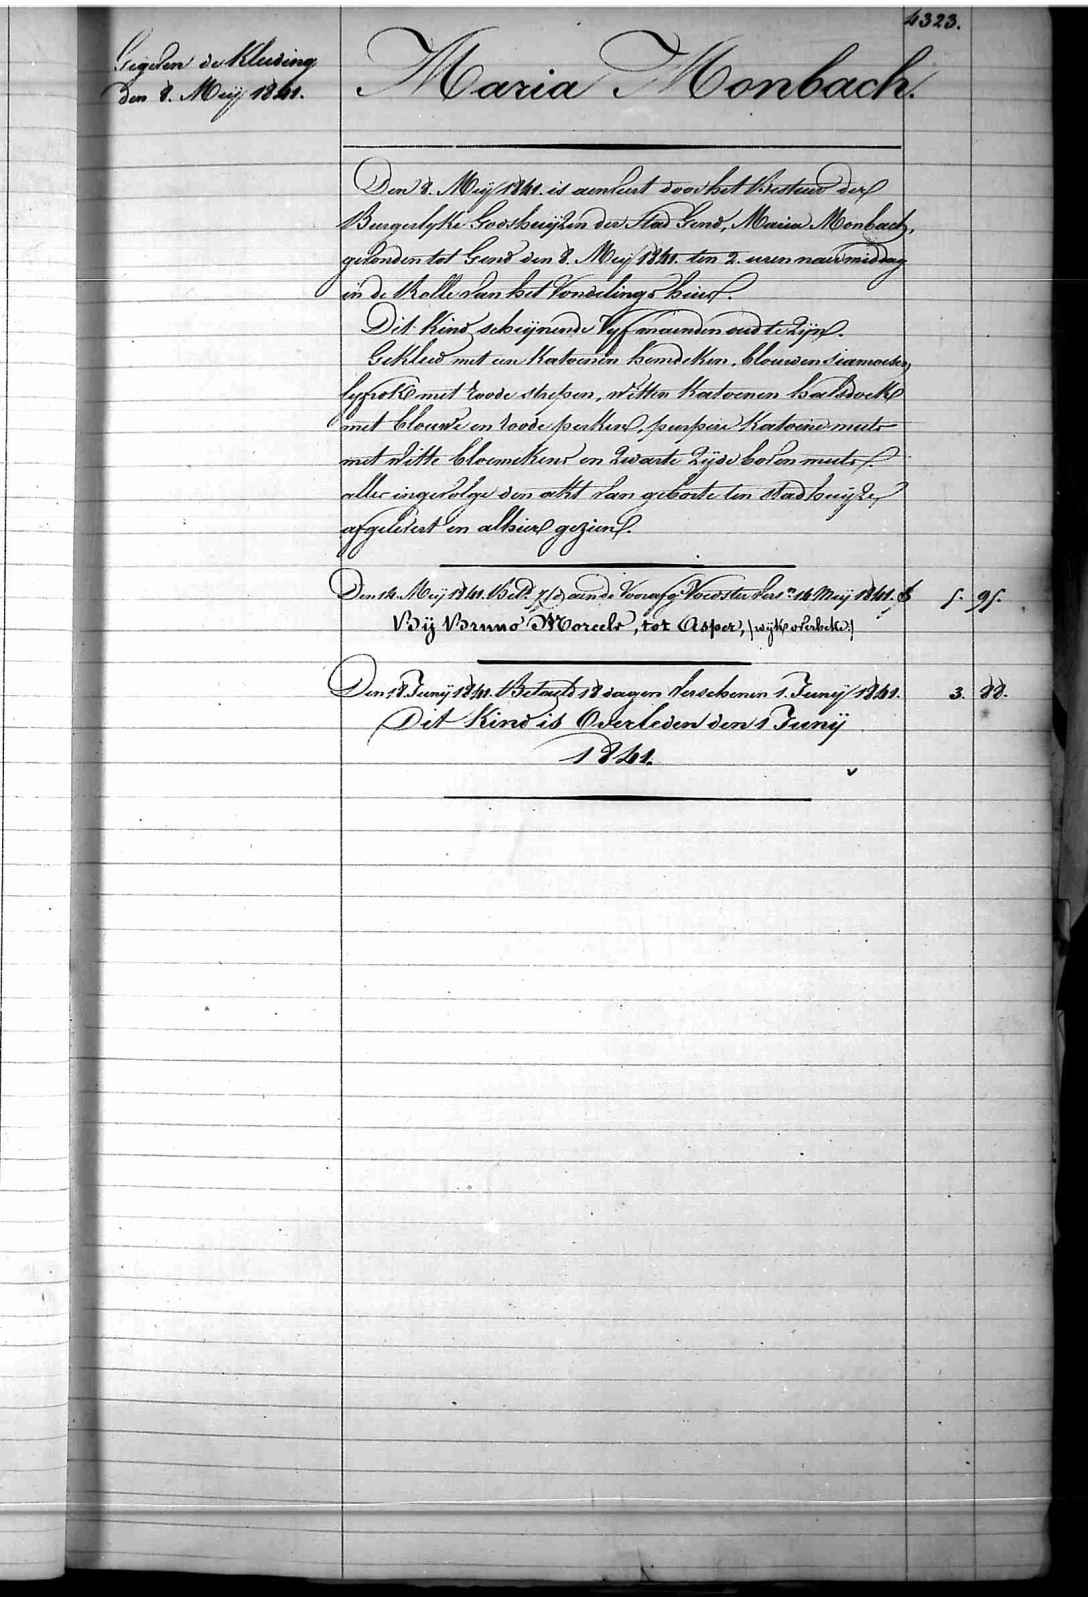 4323.
Gegeven de kleeding
den 8. Meij 1841.
Maria Monbach.
Den 8. Meij 1841. is aenveert door het Bestuer der
Burgerlyke Godshuijzen der Stad Gend, Maria Monbach,
gevonden tot Gend den 8. Meij 1841. ten 2. uren naermiddag
in de Rolle van het Vondelings huis.
Dit kind scheijnende Vyf maenden oud te Zijn.
Gekleed met een Katoenen hemdeken, blouwen siamoisen
lyfrok met roode strepen, witten Katoenen halsdoek
met blouwe en roode perken, purpere Katoene muts
met witte bloemekens en Zwarte Zijde boven muts.
alles ingevolge den akt van geboorte ten stadhuijze
afgelevert en alhier gezien.
Den 14. Meij 1841. Bet. aen de Voorafg. Voedster Vers. 14 Meij 1841. 5. 95.
Bij Bruno Morcels, tot Asper, (wijk overbeke)
Den 18 Junij 1841. Betaeld 18 dagen verschenen 1. Junij 1841. 3. 88.
Det Kind is Overleden den 1 Junij
1841.